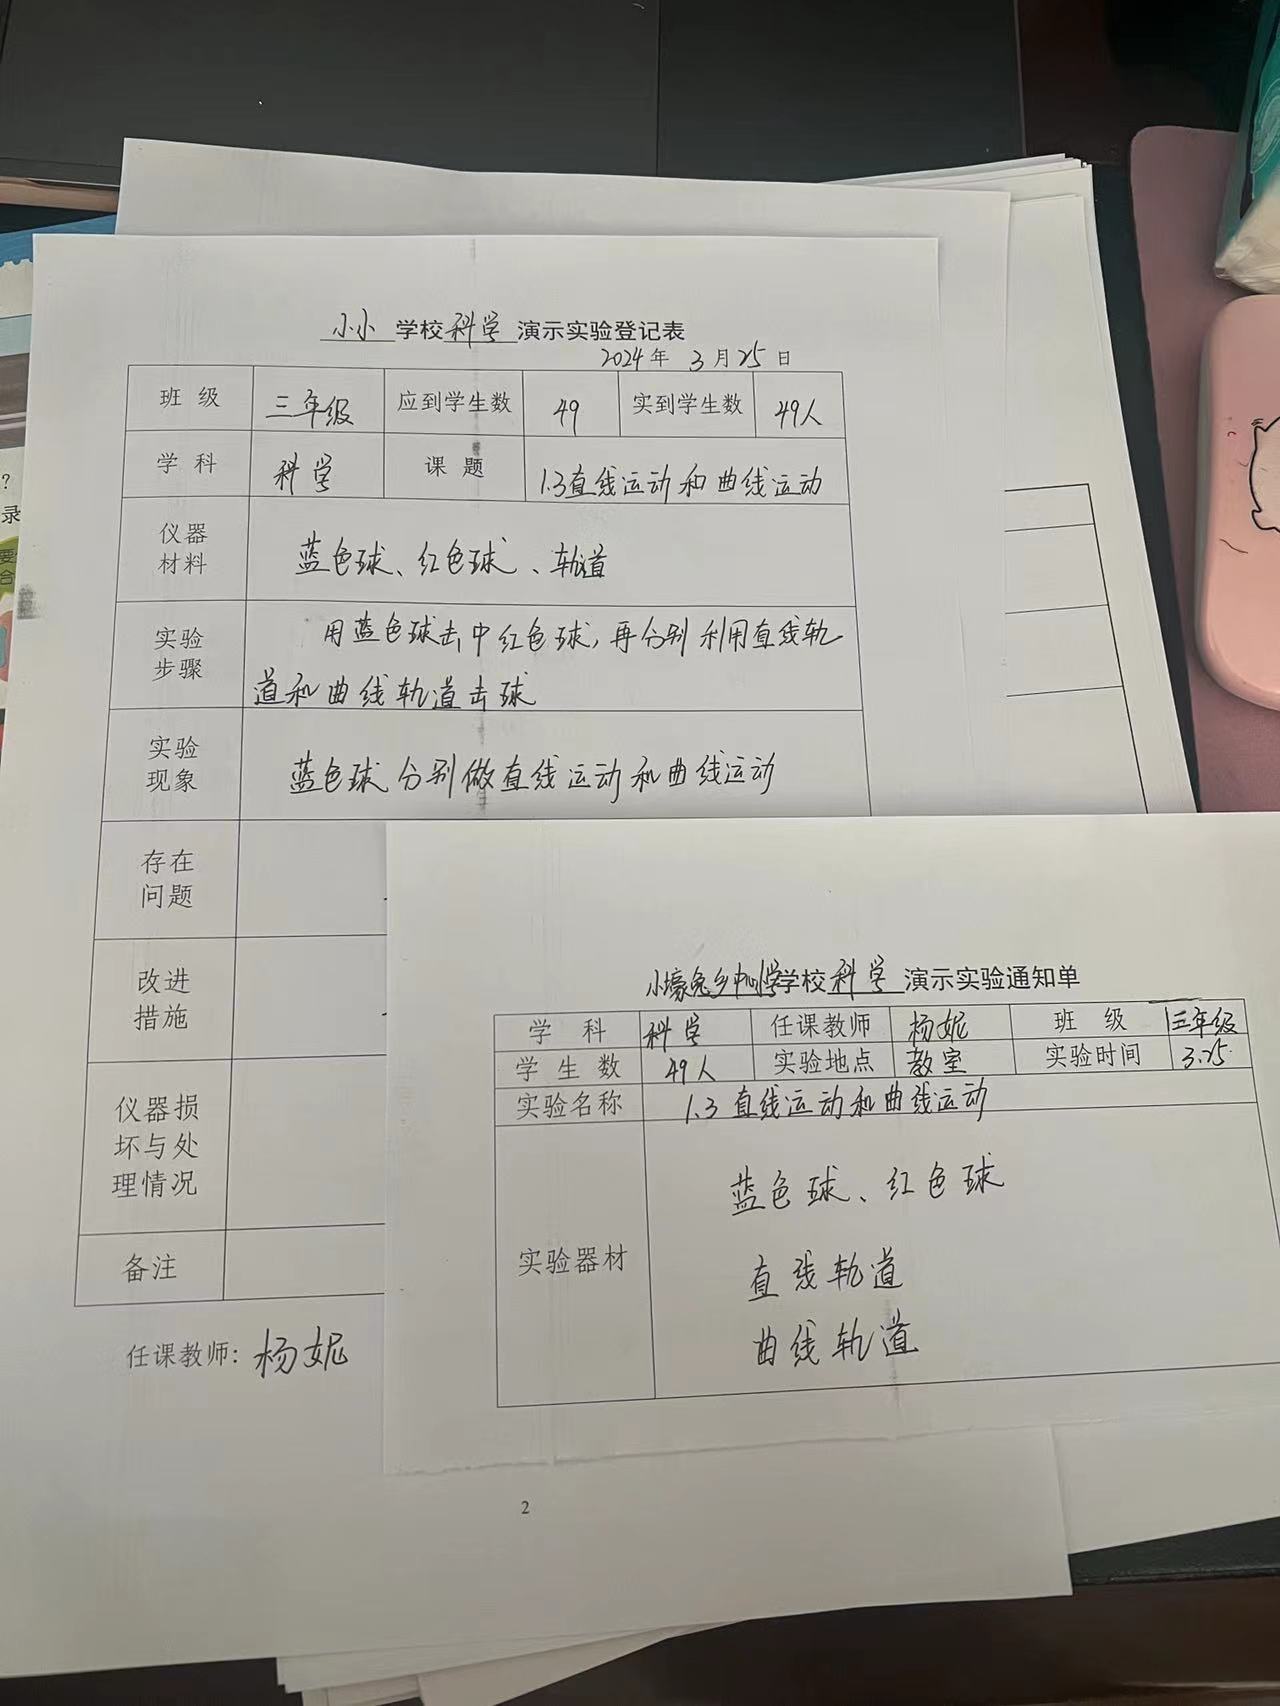 小小 学校 科学 演示实验登记表
2024 年 3 月 25 日
班 级 三年级 应到学生数 49 实到学生数 49人
学 科 科学 课 题 1.3直线运动和曲线运动
仪器
材料
蓝色球、红色球、轨道
实验
步骤
用蓝色球击中红色球,再分别利用直线轨
道和曲线轨道击球
实验
现象
蓝色球分别做直线运动和曲线运动
存在
问题
改进
措施
仪器损
坏与处
理情况
备注
任课教师: 杨妮
2
小壕兔乡中心小学学校 科学 演示实验通知单
学 科 科学 任课教师 杨妮 班 级 三年级
学 生 数 49人 实验地点 教室 实验时间 3.25.
实验名称 1.3直线运动和曲线运动
实验器材
蓝色球、红色球
直线轨道
曲线轨道
?
录
要
合